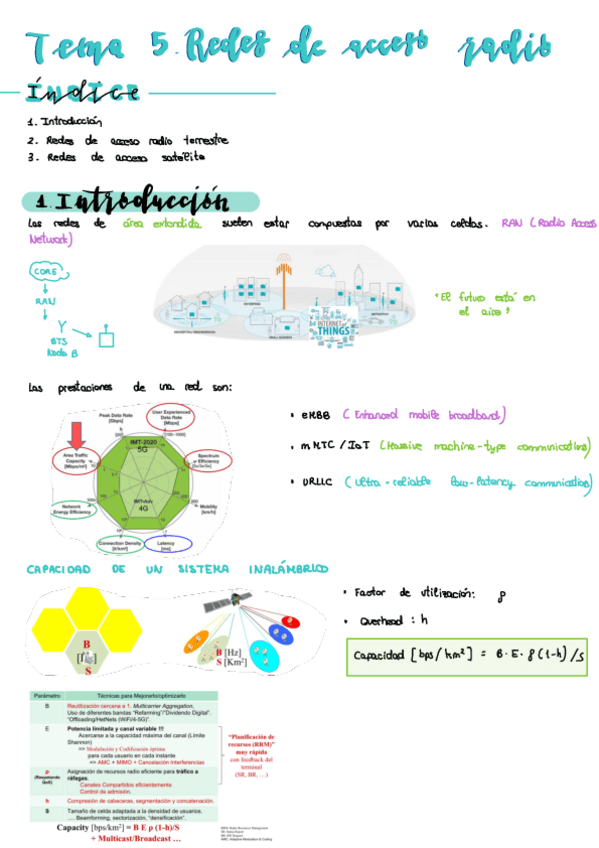 Tema 5. Redes de acceso radio
ÍNDICE
1. Introducción
2. Redes de acceso radio terrestre
3. Redes de acceso satélite
1. Introducción
Las redes de área extendida suelen estar compuestas por varias celdas. RAN (Radio Access
Network)
CORE
RAN
BTS
Nodo B
INTERNET
THINGS
"El futuro está en
el aire"
Las prestaciones de una red son:
Peak Data Rate
[Gbps]
User Experienced
Data Rate
[Mbps]
IMT-2020
5G
Area Traffic
Capacity
[Mbps/m²]
Spectrum
Efficiency
Network
Energy Efficiency
IMT-Adv
4G
Mobility
[km/h]
Connection Density
[#/km²]
Latency
[ms]
• eMBB (Enhanced mobile broadband)
• mMTC / IoT (Massive machine-type communications)
• URLLC (Ultra-reliable low-latency communications)
CAPACIDAD DE UN SISTEMA INALÁMBRICO
B
S
B [Hz]
S [Km²]
• Factor de utilización: ρ
• Overhead : h
Capacidad [bps/km²] = B·E·ρ(1-h)/S
Parámetro Técnicas para Mejorarlo/optimizarlo
B Reutilización cercana a 1. Multicarrier Aggregation,
Uso de diferentes bandas "Refarming"/"Dividendo Digital".
"Offloading/HetNets (WiFi/4-5G)".
E Potencia limitada y canal variable !!!
Acercarse a la capacidad máxima del canal (Límite
Shannon)
=> Modulación y Codificación óptima
para cada usuario en cada instante
=> AMC + MIMO + Cancelación Interferencias
ρ Asignación de recursos radio eficiente para tráfico a
ráfagas.
(Respetando
QoS)
Canales Compartidos eficientemente
Control de admisión.
h Compresión de cabeceras, segmentación y concatenación.
S Tamaño de celda adaptada a la densidad de usuarios.
.... Beamforming, sectorización, "densificación".
"Planificación de
recursos (RRM)"
muy rápida
con feedback del
terminal
(SR, BR, …)
Capacity [bps/km²] = B E ρ (1-h)/S
+ Multicast/Broadcast …